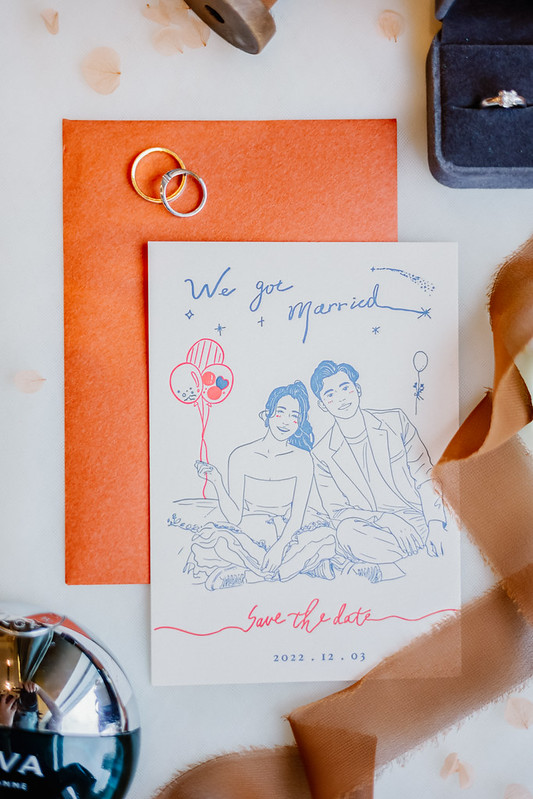 We got
Married
Save the date
2022 . 12 . 03
VA
ONNE